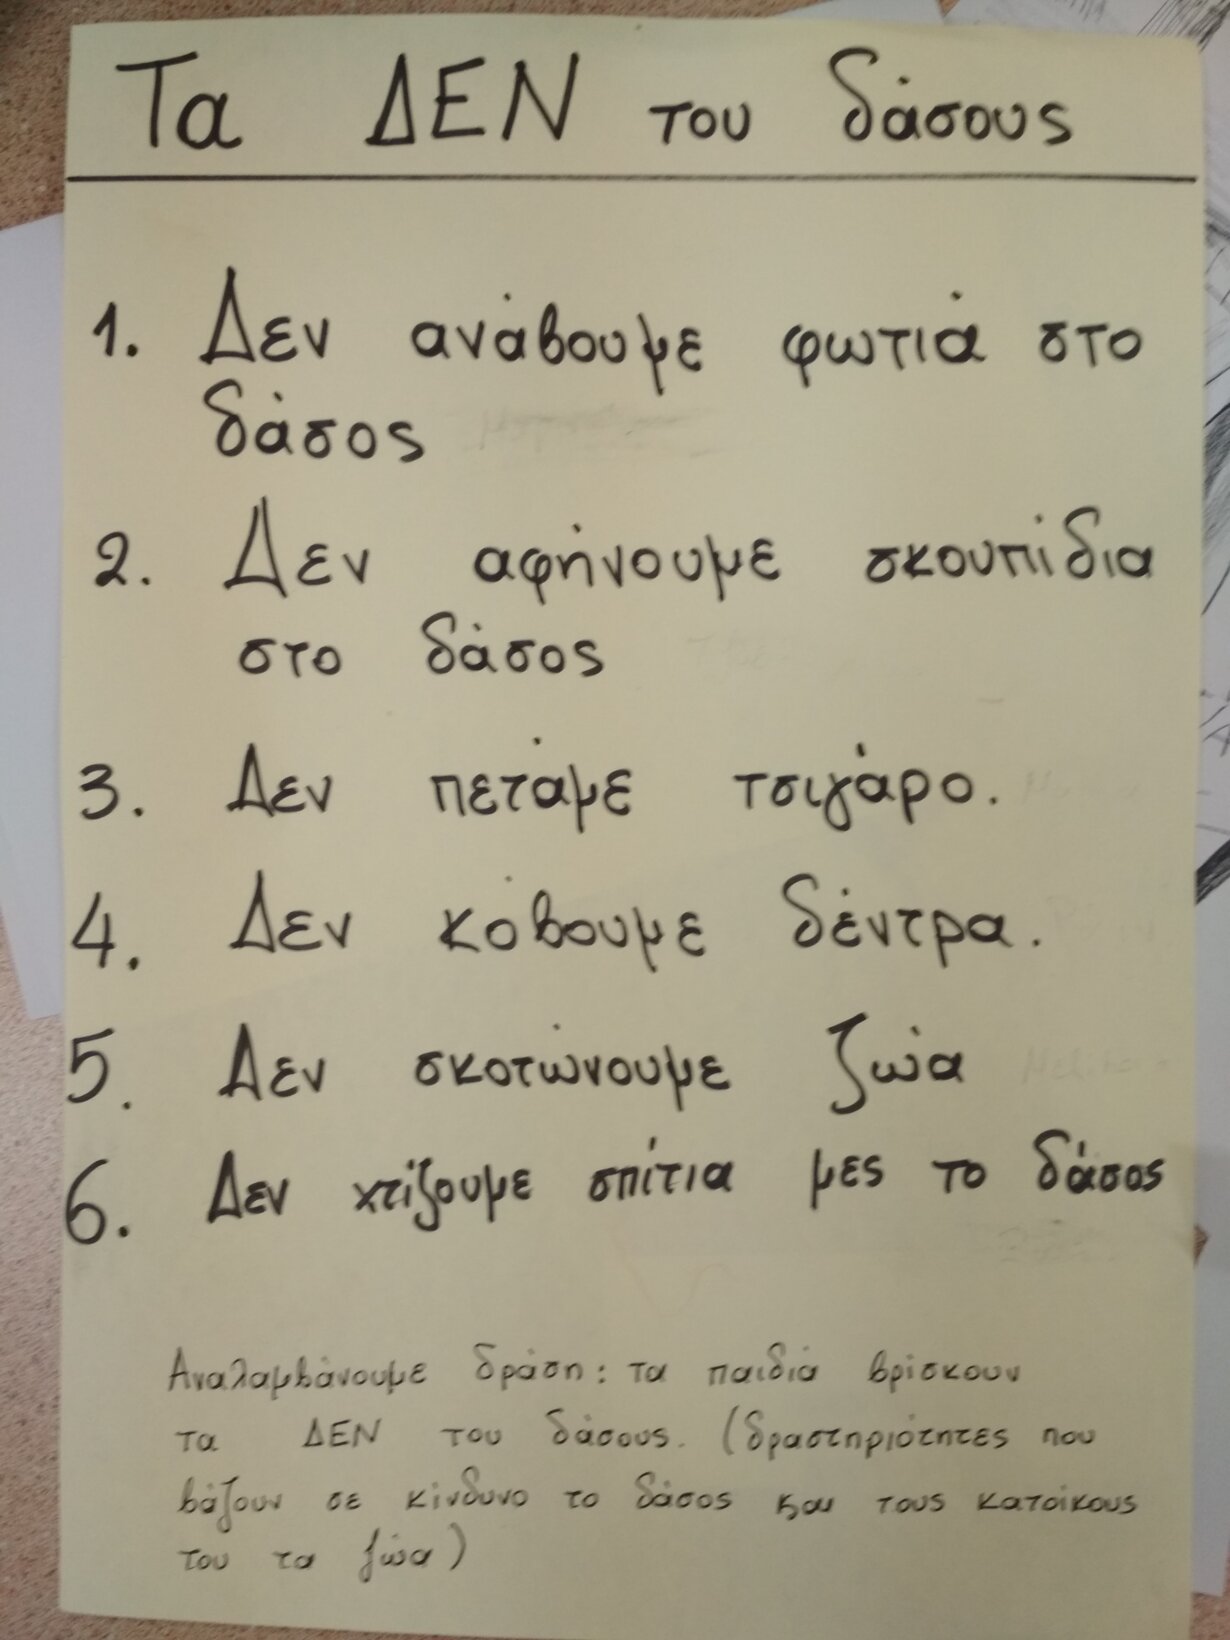 Τα ΔΕΝ του δάσους
1. Δεν ανάβουμε φωτιά στο
δάσος
2. Δεν αφήνουμε σκουπίδια
στο δάσος
3. Δεν πετάμε τσιγάρο.
4. Δεν κόβουμε δέντρα.
5. Δεν σκοτώνουμε ζώα
6. Δεν χτίζουμε σπίτια μες το δάσος
Αναλαμβάνουμε δράση: τα παιδιά βρίσκουν
τα ΔΕΝ του δάσους. (δραστηριότητες που
βάζουν σε κίνδυνο το δάσος και τους κατοίκους
του τα ζώα)